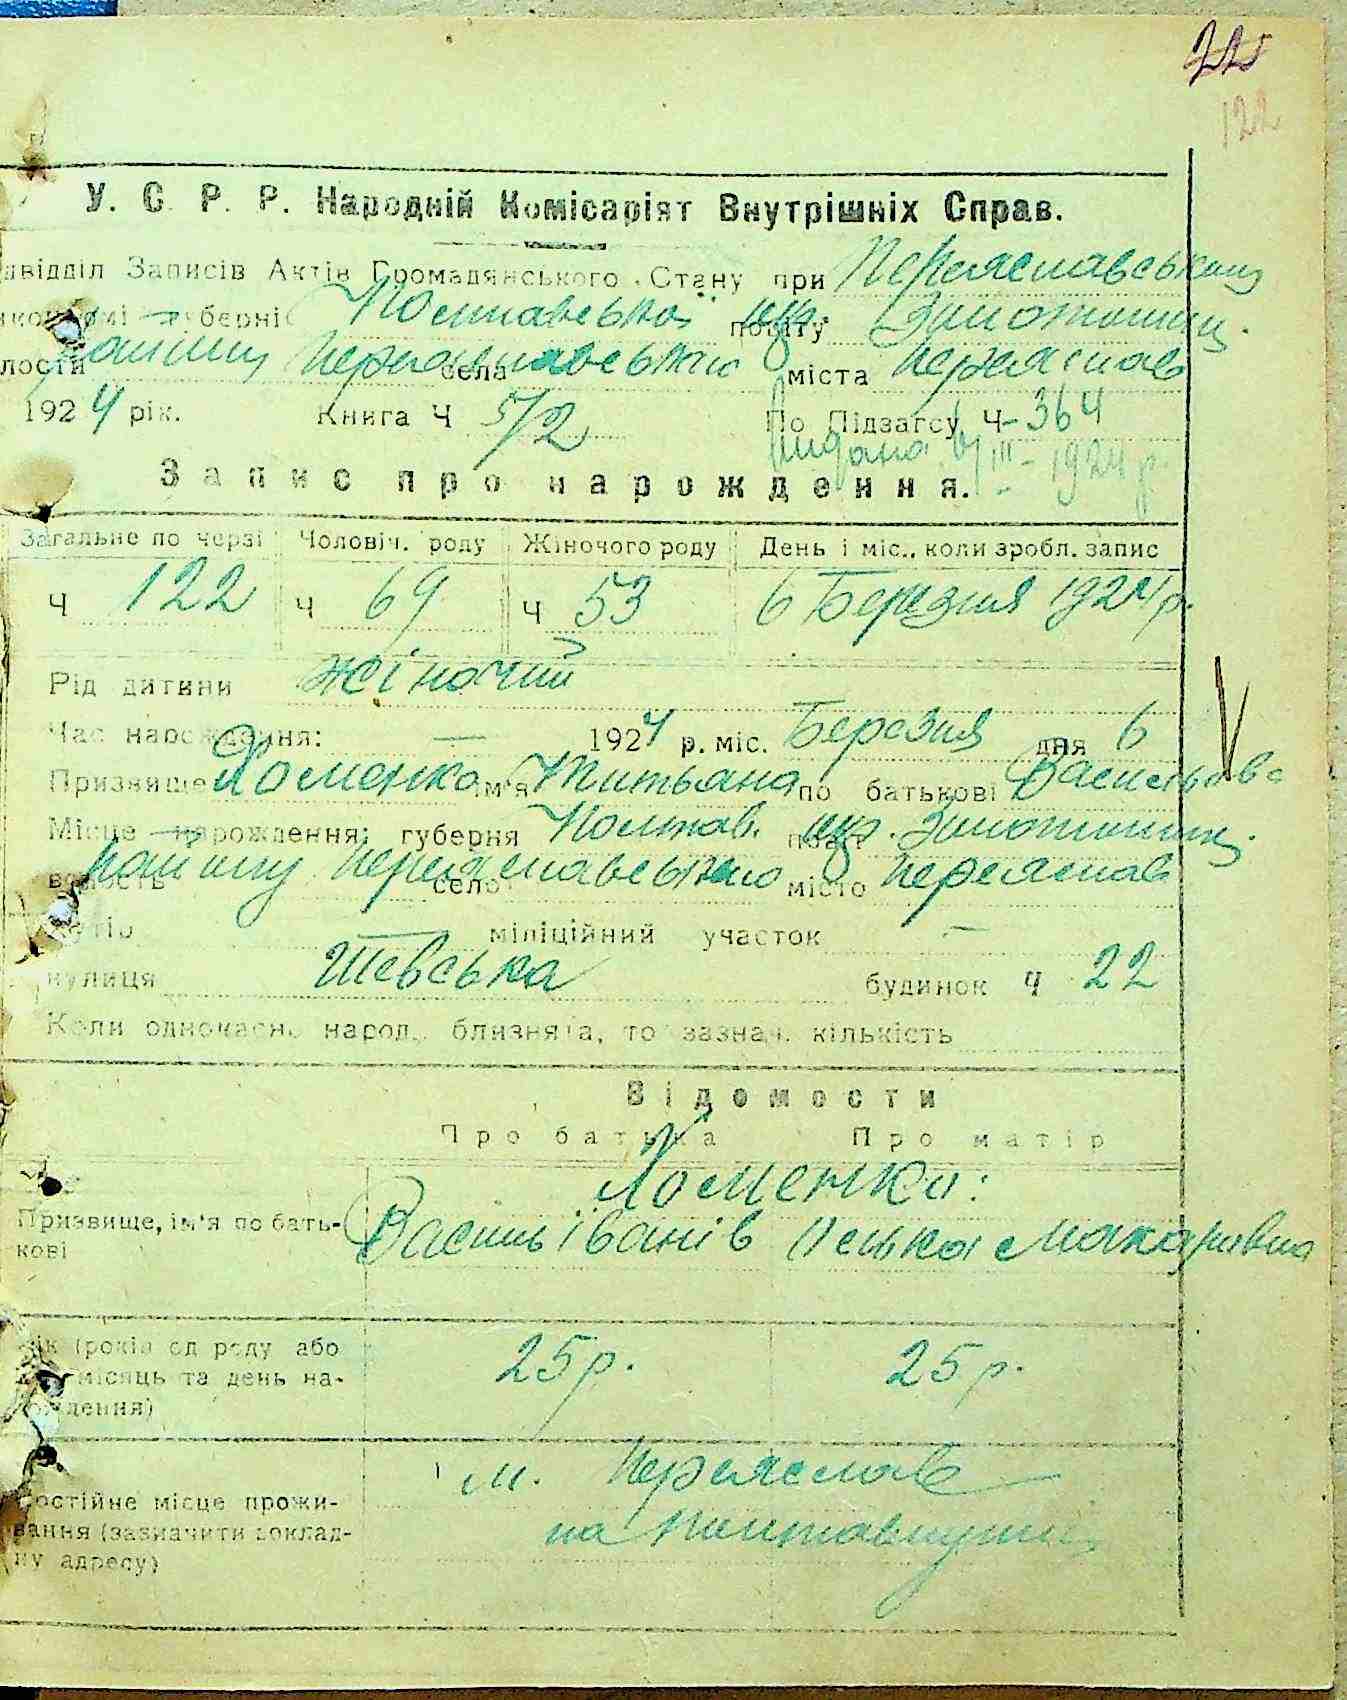 22
122
У. С. Р. Р. Народній Комісаріят Внутрішніх Справ.
двідділ Записів Актів Громадянського Стану при Переяславському
губерні Полтавської окр. повіту Золотоніщ.
лости району Переяславського села міста Переяслав
1924 рік. Книга Ч 5/2 По Підзагсу Ч-364
Видана 6/III-1924 р.
Запис про нарождення.
Загальне по черзі Чоловіч. роду Жіночого роду День і міс., коли зробл. запис
Ч 122 Ч 69 Ч 53 6 Березня 1924 р.
Рід дитини жіночий
Час нарождення: — 1924 р. міс. Березня дня 6
Призвище Хоменко ім'я Титьяна по батькові Васильовс
Місце нарождення: губерня Полтав. окр. повіт Золотоніщ.
волость району Переяславського село місто Переяслав
— міліційний участок —
вулиця Шевська будинок Ч 22
Коли одночасно народ. близнята, то зазнач. кількість
Відомости
Про батька Про матір
Хоменки:
Призвище, ім'я по бать- Василь Іванів Оська Макаривна
кові
Вік (років од роду або 25 р. 25 р.
місяць та день на-
рождення)
м. Переяслав
Постійне місце прожи-
вання (зазначити доклад- на Полтавщині
ну адресу)